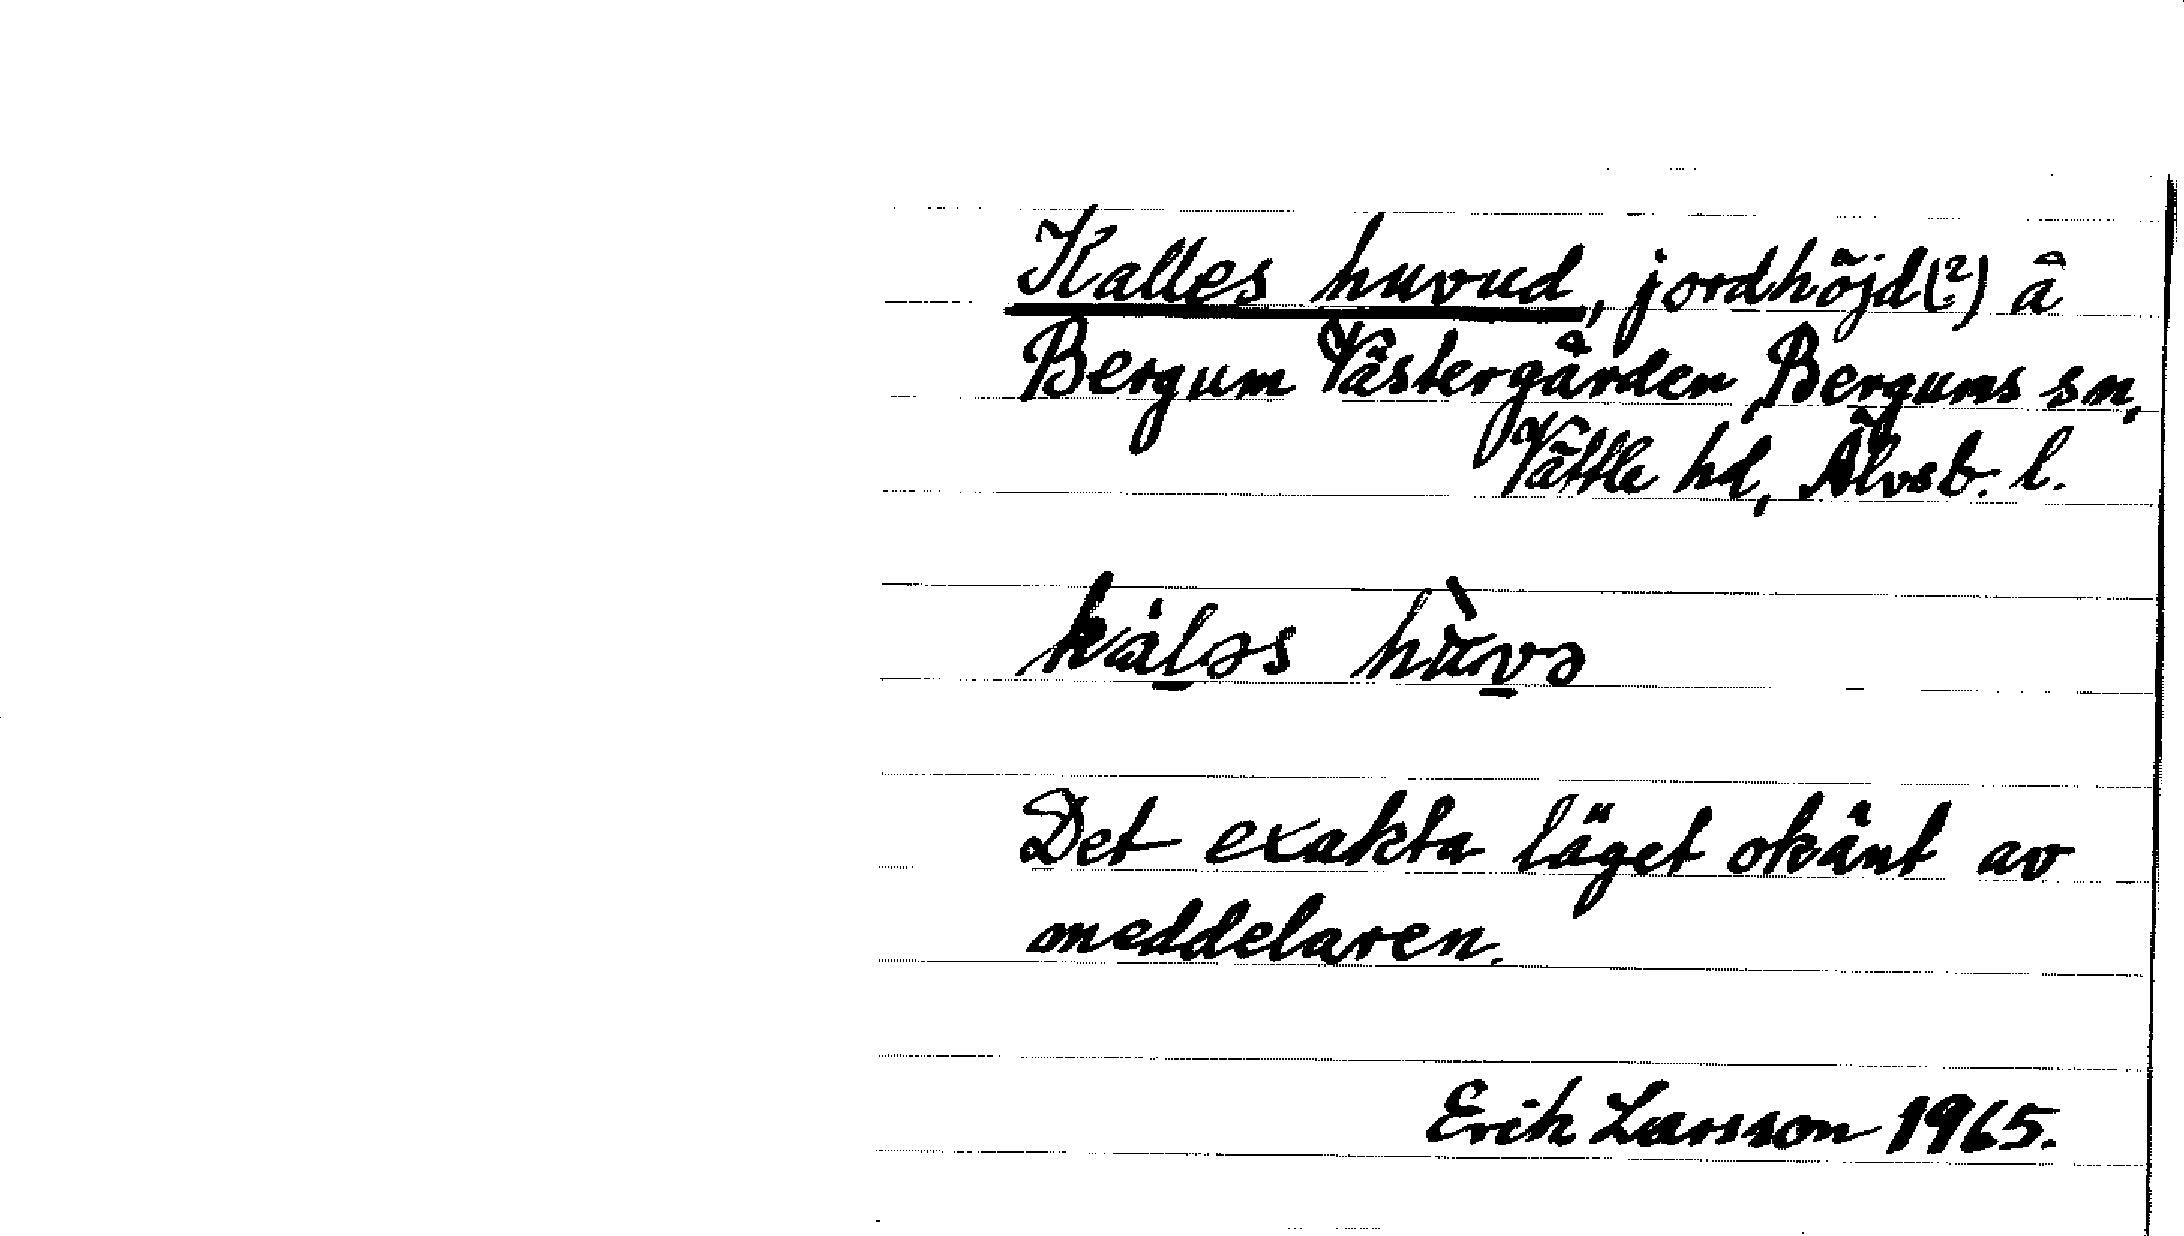 Kalles huvud, jordhöjd(?) å
Bergum Västergården, Bergums sn,
Vättle hd, Älvsb. l.
kál̠əs hùv̠ə
Det exakta läget okänt av
meddelaren.
Erik Larsson 1965.